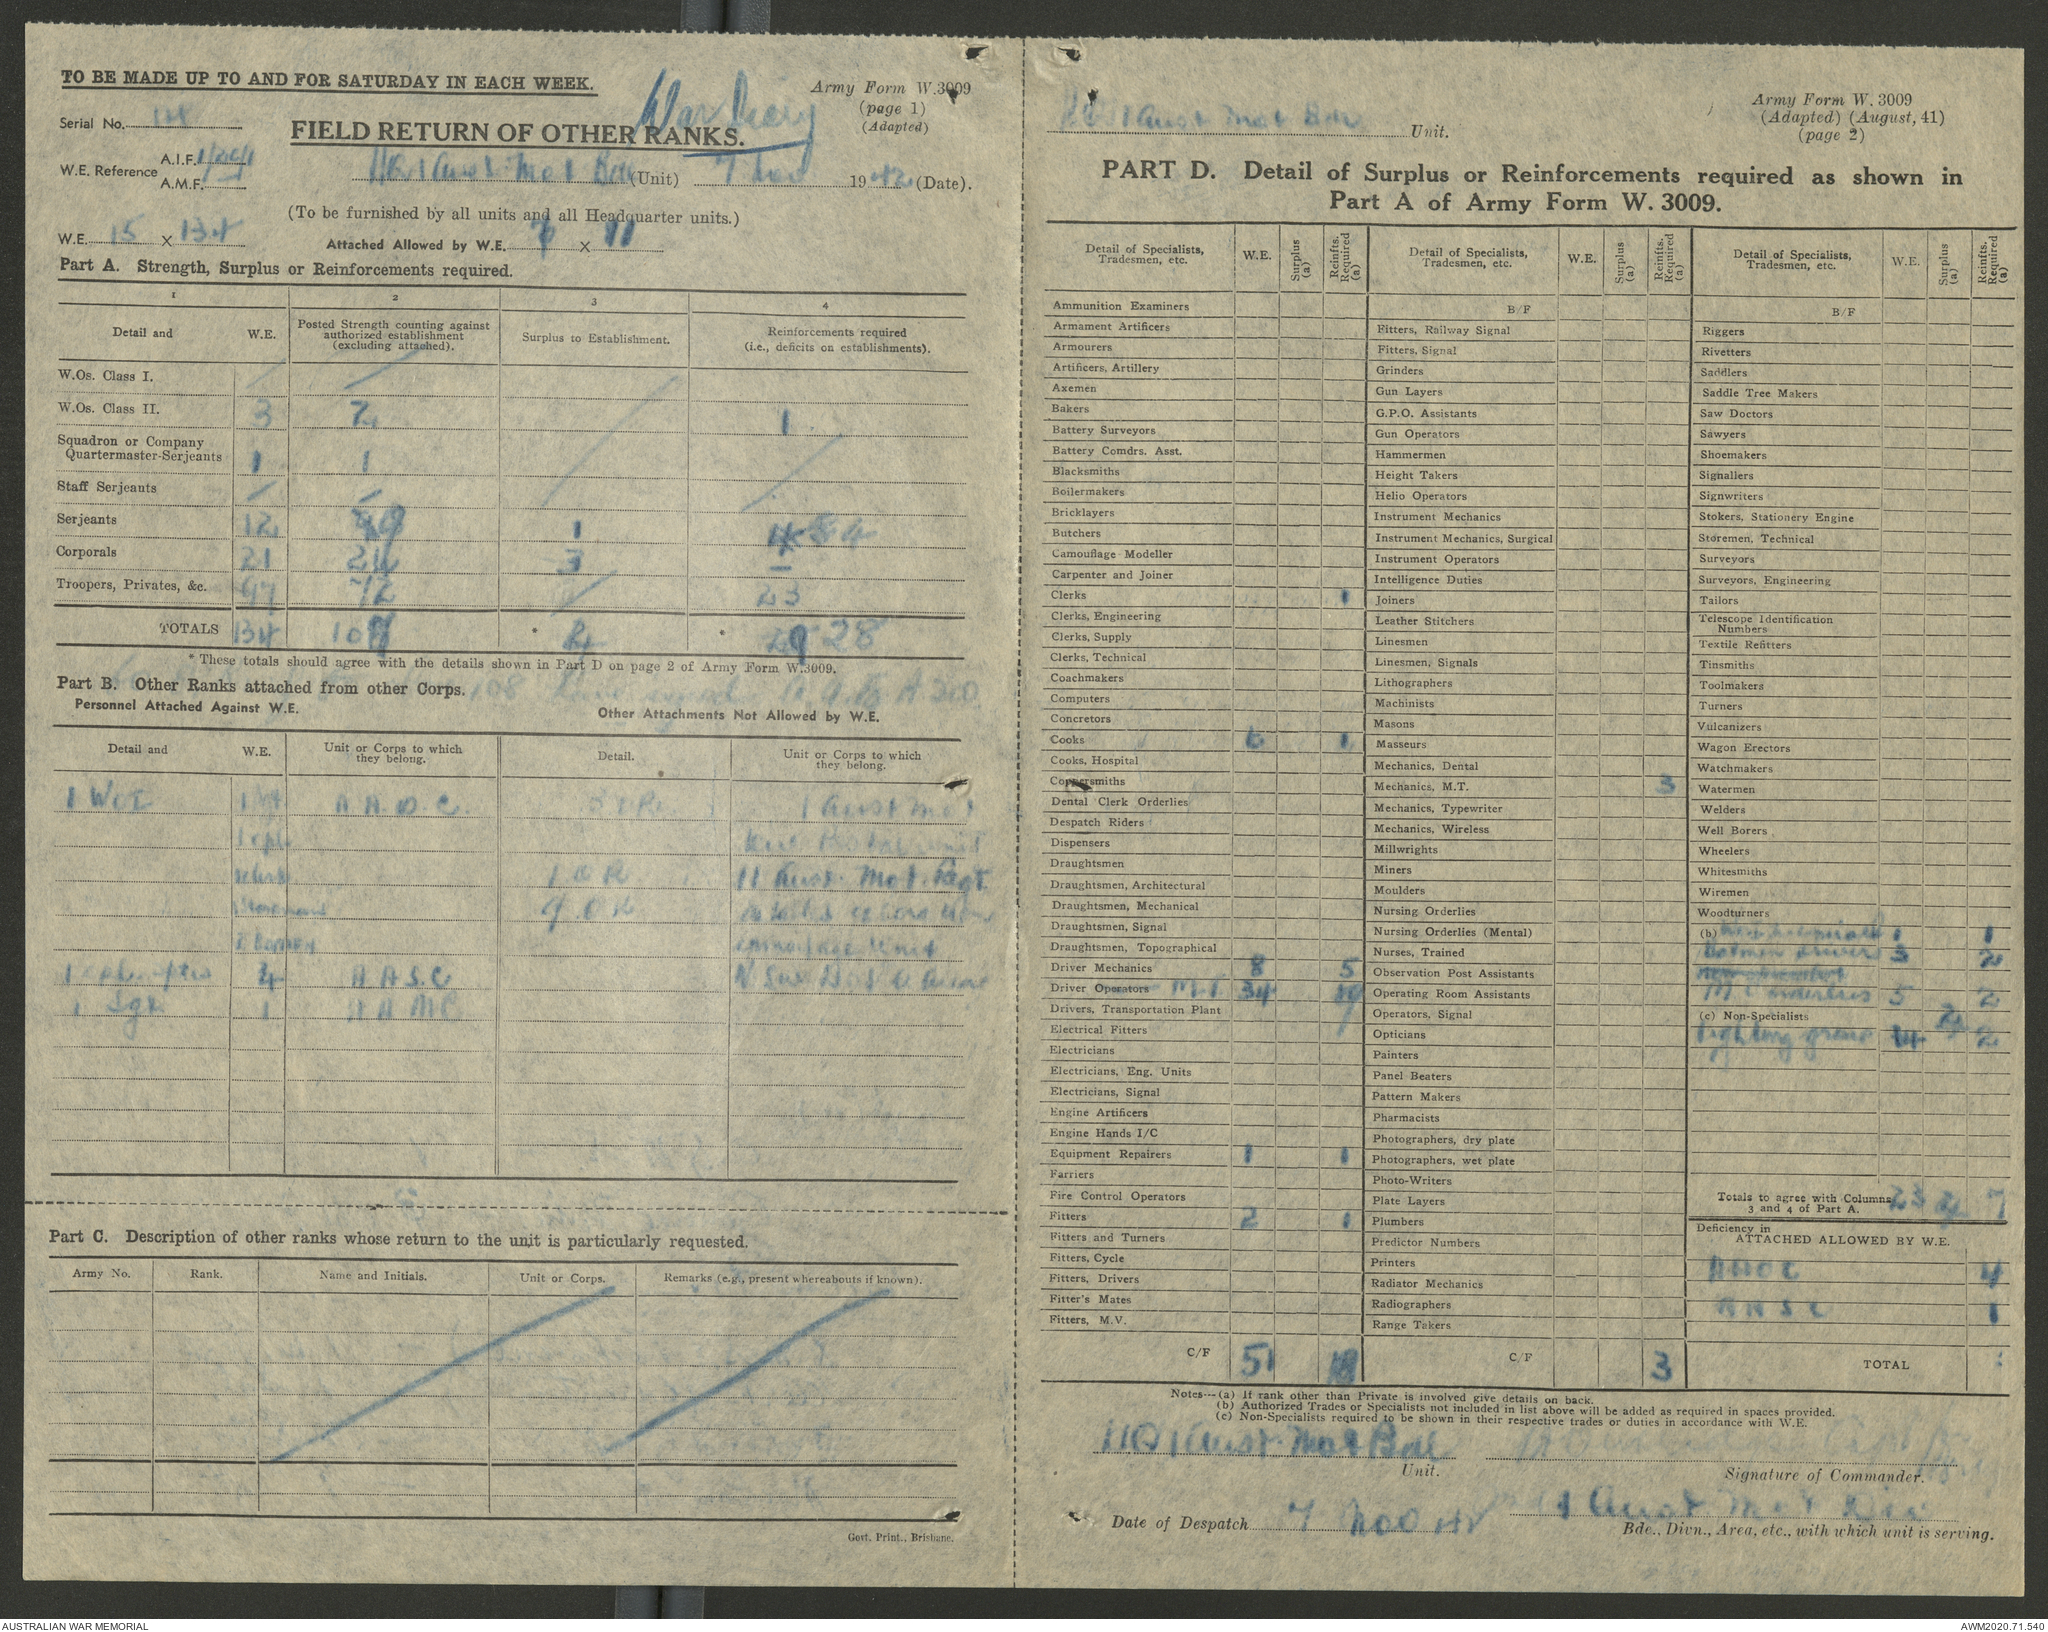 TO BE MADE UP TO AND FOR SATURDAY IN EACH WEEK.
War Diary
Army Form W.3009
(page 1)
(Adapted)
Serial No.
FIELD RETURN OF OTHER RANKS.
W.E. Reference A.I.F.
A.M.F.
HQ 1 Aust. Mot Bde (Unit) 7 Nov 1942 (Date).
(To be furnished by all units and all Headquarter units.)
W.E. 15 X 134
Attached Allowed by W.E. X 11
Part A. Strength, Surplus or Reinforcements required.
1 2 3 4
Detail and W.E. Posted Strength counting against authorized establishment (excluding attached). Surplus to Establishment. Reinforcements required (i.e., deficits on establishments).
W.Os. Class I.
W.Os. Class II. 3 2 1
Squadron or Company Quartermaster-Serjeants 1 1
Staff Serjeants
Serjeants 12 1
Corporals 21 24 3
Troopers, Privates, &c. 97 72 23
TOTALS 134 * * 28
* These totals should agree with the details shown in Part D on page 2 of Army Form W.3009.
Part B. Other Ranks attached from other Corps.
Personnel Attached Against W.E. Other Attachments Not Allowed by W.E.
Detail and W.E. Unit or Corps to which they belong. Detail. Unit or Corps to which they belong.
A.A.O.C. 1 Aust Mot
1 OR 11 Aust. Mot. Regt.
9 OR
Camouflage Unit
4 A A S C
1 Sgt 1 A A M C
Part C. Description of other ranks whose return to the unit is particularly requested.
Army No. Rank. Name and Initials. Unit or Corps. Remarks (e.g., present whereabouts if known).
Govt. Print., Brisbane.
HQ 1 Aust Mot Bde Unit.
Army Form W. 3009
(Adapted) (August, 41)
(page 2)
PART D. Detail of Surplus or Reinforcements required as shown in
Part A of Army Form W. 3009.
Detail of Specialists, Tradesmen, etc. W.E. Surplus (a) Reinfts. Required (a)
Ammunition Examiners
Armament Artificers
Armourers
Artificers, Artillery
Axemen
Bakers
Battery Surveyors
Battery Comdrs. Asst.
Blacksmiths
Boilermakers
Bricklayers
Butchers
Camouflage Modeller
Carpenter and Joiner
Clerks 1
Clerks, Engineering
Clerks, Supply
Clerks, Technical
Coachmakers
Computers
Concretors
Cooks 6 1
Cooks, Hospital
Coppersmiths
Dental Clerk Orderlies
Despatch Riders
Dispensers
Draughtsmen
Draughtsmen, Architectural
Draughtsmen, Mechanical
Draughtsmen, Signal
Draughtsmen, Topographical
Driver Mechanics 8 5
Driver Operators M.T. 34
Drivers, Transportation Plant
Electrical Fitters
Electricians
Electricians, Eng. Units
Electricians, Signal
Engine Artificers
Engine Hands I/C
Equipment Repairers 1 1
Farriers
Fire Control Operators
Fitters 2 1
Fitters and Turners
Fitters, Cycle
Fitters, Drivers
Fitter's Mates
Fitters, M.V.
C/F 51 18
Detail of Specialists, Tradesmen, etc. W.E. Surplus (a) Reinfts. Required (a)
B/F
Fitters, Railway Signal
Fitters, Signal
Grinders
Gun Layers
G.P.O. Assistants
Gun Operators
Hammermen
Height Takers
Helio Operators
Instrument Mechanics
Instrument Mechanics, Surgical
Instrument Operators
Intelligence Duties
Joiners
Leather Stitchers
Linesmen
Linesmen, Signals
Lithographers
Machinists
Masons
Masseurs
Mechanics, Dental
Mechanics, M.T. 3
Mechanics, Typewriter
Mechanics, Wireless
Millwrights
Miners
Moulders
Nursing Orderlies
Nursing Orderlies (Mental)
Nurses, Trained
Observation Post Assistants
Operating Room Assistants
Operators, Signal
Opticians
Painters
Panel Beaters
Pattern Makers
Pharmacists
Photographers, dry plate
Photographers, wet plate
Photo-Writers
Plate Layers
Plumbers
Predictor Numbers
Printers
Radiator Mechanics
Radiographers
Range Takers
C/F 3
Detail of Specialists, Tradesmen, etc. W.E. Surplus (a) Reinfts. Required (a)
B/F
Riggers
Rivetters
Saddlers
Saddle Tree Makers
Saw Doctors
Sawyers
Shoemakers
Signallers
Signwriters
Stokers, Stationery Engine
Storemen, Technical
Surveyors
Surveyors, Engineering
Tailors
Telescope Identification Numbers
Textile Refitters
Tinsmiths
Toolmakers
Turners
Vulcanizers
Wagon Erectors
Watchmakers
Watermen
Welders
Well Borers
Wheelers
Whitesmiths
Wiremen
Woodturners
(b) 1 1
Batmen drivers 3 2
5 2
(c) Non-Specialists
Fighting group 14 2
Totals to agree with Columns 3 and 4 of Part A. 23 7
Deficiency in
ATTACHED ALLOWED BY W.E.
AAOC 4
AASC 1
TOTAL
Notes—(a) If rank other than Private is involved give details on back.
(b) Authorized Trades or Specialists not included in list above will be added as required in spaces provided.
(c) Non-Specialists required to be shown in their respective trades or duties in accordance with W.E.
HQ 1 Aust. Mot Bde
Unit.
Signature of Commander.
Date of Despatch 7 Nov 42
1 Aust Mot Div
Bde., Divn., Area, etc., with which unit is serving.
AUSTRALIAN WAR MEMORIAL
AWM2020.71.540